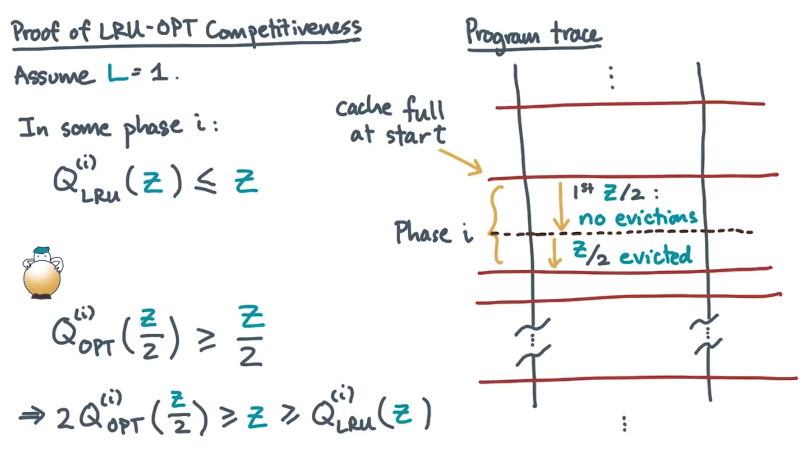 Proof of LRU-OPT Competitiveness
Assume L = 1.
In some phase i:
Q_LRU^(i) (Z) ≤ Z
Q_OPT^(i) (Z/2) ≥ Z/2
⇒ 2 Q_OPT^(i) (Z/2) ≥ Z ≥ Q_LRU^(i) (Z)
Program trace
⋮
cache full
at start
Phase i
1st Z/2 :
no evictions
Z/2 evicted
⋮ ⋮
⋮